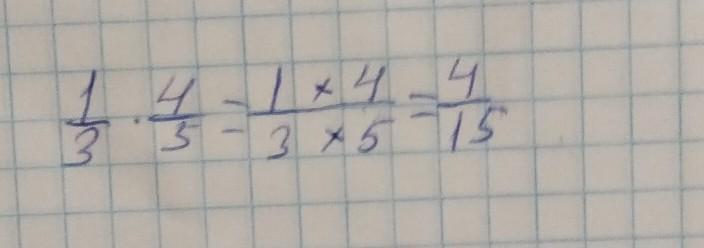 1/3 · 4/5 = 1 × 4 / 3 × 5 = 4/15